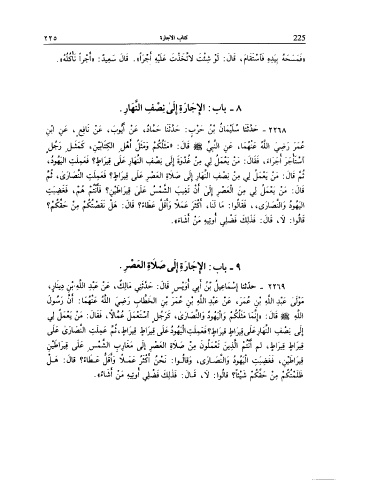 ٢٢٥ كتاب الإجارة 225
«فَمَسَحَهُ بِيَدِهِ فَاسْتَقَامَ، قَالَ: لَوْ شِئْتَ لاتَّخَذْتَ عَلَيْهِ أَجْراً». قَالَ سَعِيدٌ: «أَجْراً نَأْكُلُهُ».
٨ - باب: الإجَارَةِ إلَى نِصْفِ النَّهَارِ.
٢٢٦٨ - حَدَّثَنَا سُلَيْمَانُ بْنُ حَرْبٍ: حَدَّثَنَا حَمَّادٌ، عَنْ أَيُّوبَ، عَنْ نَافِعٍ، عَنِ ابْنِ
عُمَرَ رَضِيَ اللَّهُ عَنْهُمَا، عَنِ النَّبِيِّ ﷺ قَالَ: «مَثَلُكُمْ وَمَثَلُ أَهْلِ الكِتَابَيْنِ، كَمَثَلِ رَجُلٍ
اسْتَأْجَرَ أُجَرَاءَ، فَقَالَ: مَنْ يَعْمَلُ لِي مِنْ غُدْوَةَ إِلَى نِصْفِ النَّهَارِ عَلَى قِيرَاطٍ؟ فَعَمِلَتِ اليَهُودُ،
ثُمَّ قَالَ: مَنْ يَعْمَلُ لِي مِنْ نِصْفِ النَّهَارِ إِلَى صَلاَةِ العَصْرِ عَلَى قِيرَاطٍ؟ فَعَمِلَتِ النَّصَارَى، ثُمَّ
قَالَ: مَنْ يَعْمَلُ لِي مِنَ العَصْرِ إِلَى أَنْ تَغِيبَ الشَّمْسُ عَلَى قِيرَاطَيْنِ؟ فَأَنْتُمْ هُمْ، فَغَضِبَتِ
اليَهُودُ وَالنَّصَارَى،، فَقَالُوا: مَا لَنَا، أَكْثَرَ عَمَلاً وَأَقَلَّ عَطَاءً؟ قَالَ: هَلْ نَقَصْتُكُمْ مِنْ حَقِّكُمْ؟
قَالُوا: لاَ، قَالَ: فَذَلِكَ فَضْلِي أُوتِيهِ مَنْ أَشَاءُ».
٩ - باب: الإجَارَةِ إِلَى صَلاَةِ العَصْرِ.
٢٢٦٩ - حدّثنا إِسْمَاعِيلُ بْنُ أَبِي أُوَيْسٍ قَالَ: حَدَّثَنِي مَالِكٌ، عَنْ عَبْدِ اللَّهِ بْنِ دِينَارٍ،
مَوْلَى عَبْدِ اللَّهِ بْنِ عُمَرَ، عَنْ عَبْدِ اللَّهِ بْنِ عُمَرَ بْنِ الخَطَّابِ رَضِيَ اللَّهُ عَنْهُمَا: أَنَّ رَسُولَ
اللَّهِ ﷺ قَالَ: «إِنَّمَا مَثَلُكُمْ وَاليَهُودُ وَالنَّصَارَى، كَرَجُلٍ اسْتَعْمَلَ عُمَّالاً، فَقَالَ: مَنْ يَعْمَلُ لِي
إِلَى نِصْفِ النَّهَارِ عَلَى قِيرَاطٍ قِيرَاطٍ؟ فَعَمِلَتِ اليَهُودُ عَلَى قِيرَاطٍ قِيرَاطٍ، ثُمَّ عَمِلَتِ النَّصَارَى عَلَى
قِيرَاطٍ قِيرَاطٍ، ثم أَنْتُمُ الَّذِينَ تَعْمَلُونَ مِنْ صَلاَةِ العَصْرِ إِلَى مَغَارِبِ الشَّمْسِ عَلَى قِيرَاطَيْنِ
قِيرَاطَيْنِ، فَغَضِبَتِ اليَهُودُ وَالنَّصَارَى، وَقَالُوا: نَحْنُ أَكْثَرُ عَمَلاً وَأَقَلُّ عَطَاءً؟ قالَ: هَلْ
ظَلَمْتُكُمْ مِنْ حَقِّكُمْ شَيْئاً؟ قالُوا: لاَ، قَالَ: فَذَلِكَ فَضْلِي أُوتِيهِ مَنْ أَشَاءُ».